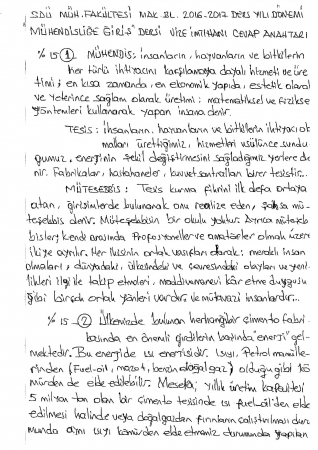 SDÜ MÜH.FAKÜLTESİ MAK.BL. 2016-2017 DERS YILI DÖNEMİ
MÜHENDİSLİĞE GİRİŞ DERSİ VİZE İMTİHANI CEVAP ANAHTARI
% 15 (1) MÜHENDİS: insanların, hayvanların ve bitkilerin
her türlü ihtiyacını karşılamaya dayalı hizmeti ve üre
timi; en kısa zamanda, en ekonomik yapıda, estetik olarak
ve yeterince sağlam olarak üretimi; matematiksel ve fiziksel
yöntemleri kullanarak yapan insana denir.
TESİS: İnsanların, hayvanların ve bitkilerin ihtiyacı ol
malları ürettiğimiz, hizmetleri
duğumuz, enerjinin şekil değiştirmesini sağladığımız yerlere de
nir. Fabrikalar, hastahaneler, kuvvet santralları birer tesistir..
MÜTEŞEBBİS: Tesis kurma fikrini ilk defa ortaya
atan, girişimlerde bulunarak onu realize eden, şahsa mü-
teşebbis denir. Müteşebbisin bir okulu yoktur. Ayrıca müteşeb
bisler; kendi arasında Profosyoneller ve amatörler olmak üzere
ikiye ayrılır. Her ikisinin ortak vasıfları olarak: meraklı insan
olmaları, dünyadaki, ülkesindeki ve çevresindeki olayları ve yeni
likleri ilgi ile takip etmeleri, maddi manevi kâr etme duygusu
gibi birçok ortak yönleri vardır ve mütevazi insanlardır..
% 15 - (2) Ülkemizde bulunan herhangi bir çimento fabri
kasında en önemli girdilerin başında "enerji" gel-
mektedir. Bu enerji de ısı enerjisidir. Isıyı, Petrol mamülle-
rinden (Fuel-oil, mazot, benzin doğal gaz) olduğu gibi kö
mürden de elde edebilir. Meselâ; yıllık üretim kapasitesi
5 milyon ton olan bir çimento tesisinde ısı fuel-oil'den elde
edilmesi halinde veya doğalgazdan fırınların çalıştırılması duru
munda aynı ısıyı kömürden elde etmemiz durumunda yapılan